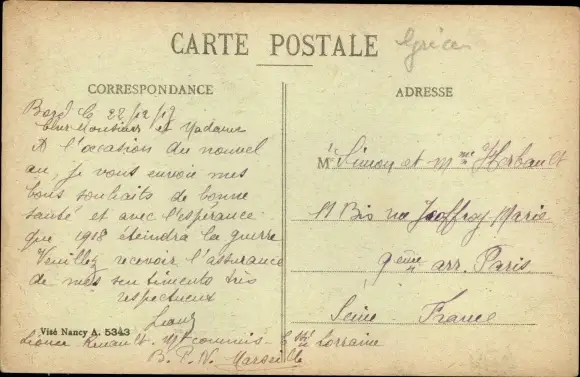 CARTE POSTALE
Grèce
CORRESPONDANCE
ADRESSE
Bord le 22/12/17
Cher Monsieur et Madame
A l'occasion du nouvel
an, je vous envoie mes
bons souhaits de bonne
santé et avec l'espérance
que 1918 éteindra la guerre
Veuillez recevoir l'assurance
de mes sentiments très
respectueux
Visé Nancy A. 5343
Renault commis Cie Lorraine
B. P. N. Marseille
Mr Simon et Mme Herbault
11 Bis rue Geoffroy Marie
9ème arr. Paris
Seine France